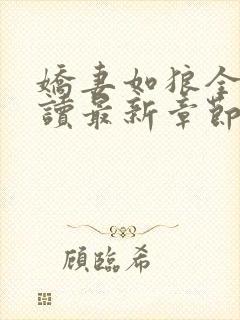 嬌妻如狼全
讀最新章節
顧臨希